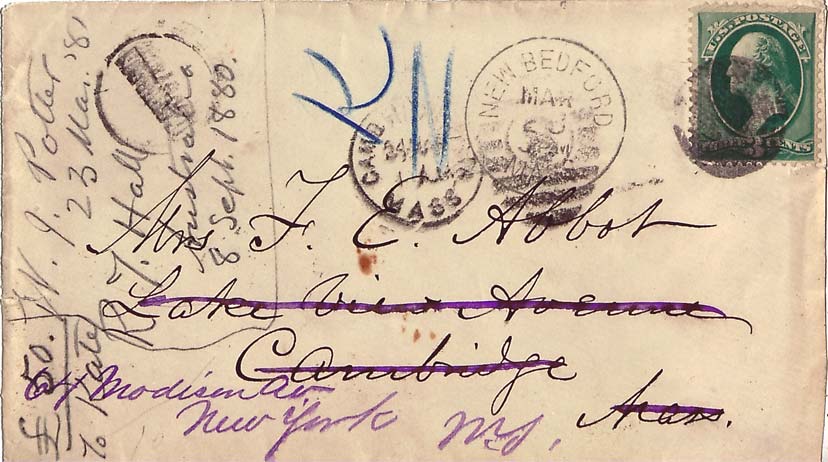 £50.
to Kate
W. J. Potter
23 Mar. '81
R. J. Hall
Australia
8 Sept. 1880.
NEW BEDFORD
MAR
MASS
U.S. POSTAGE
CENTS
Mrs F. E. Abbot
Lake View Avenue
Cambridge
Mass.
64 Madison Av
New York